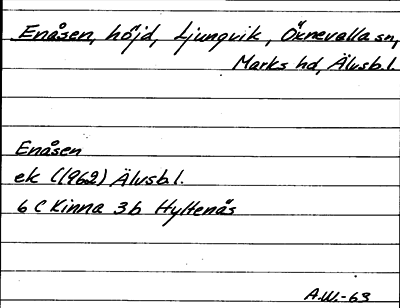 Enåsen, höjd, Ljungvik, Öxnevalla sn,
Marks hd, Älvsb.l.
Enåsen
ek (1962) Älvsb.l.
6 C Kinna 3b Hyltenäs
A.W.-63